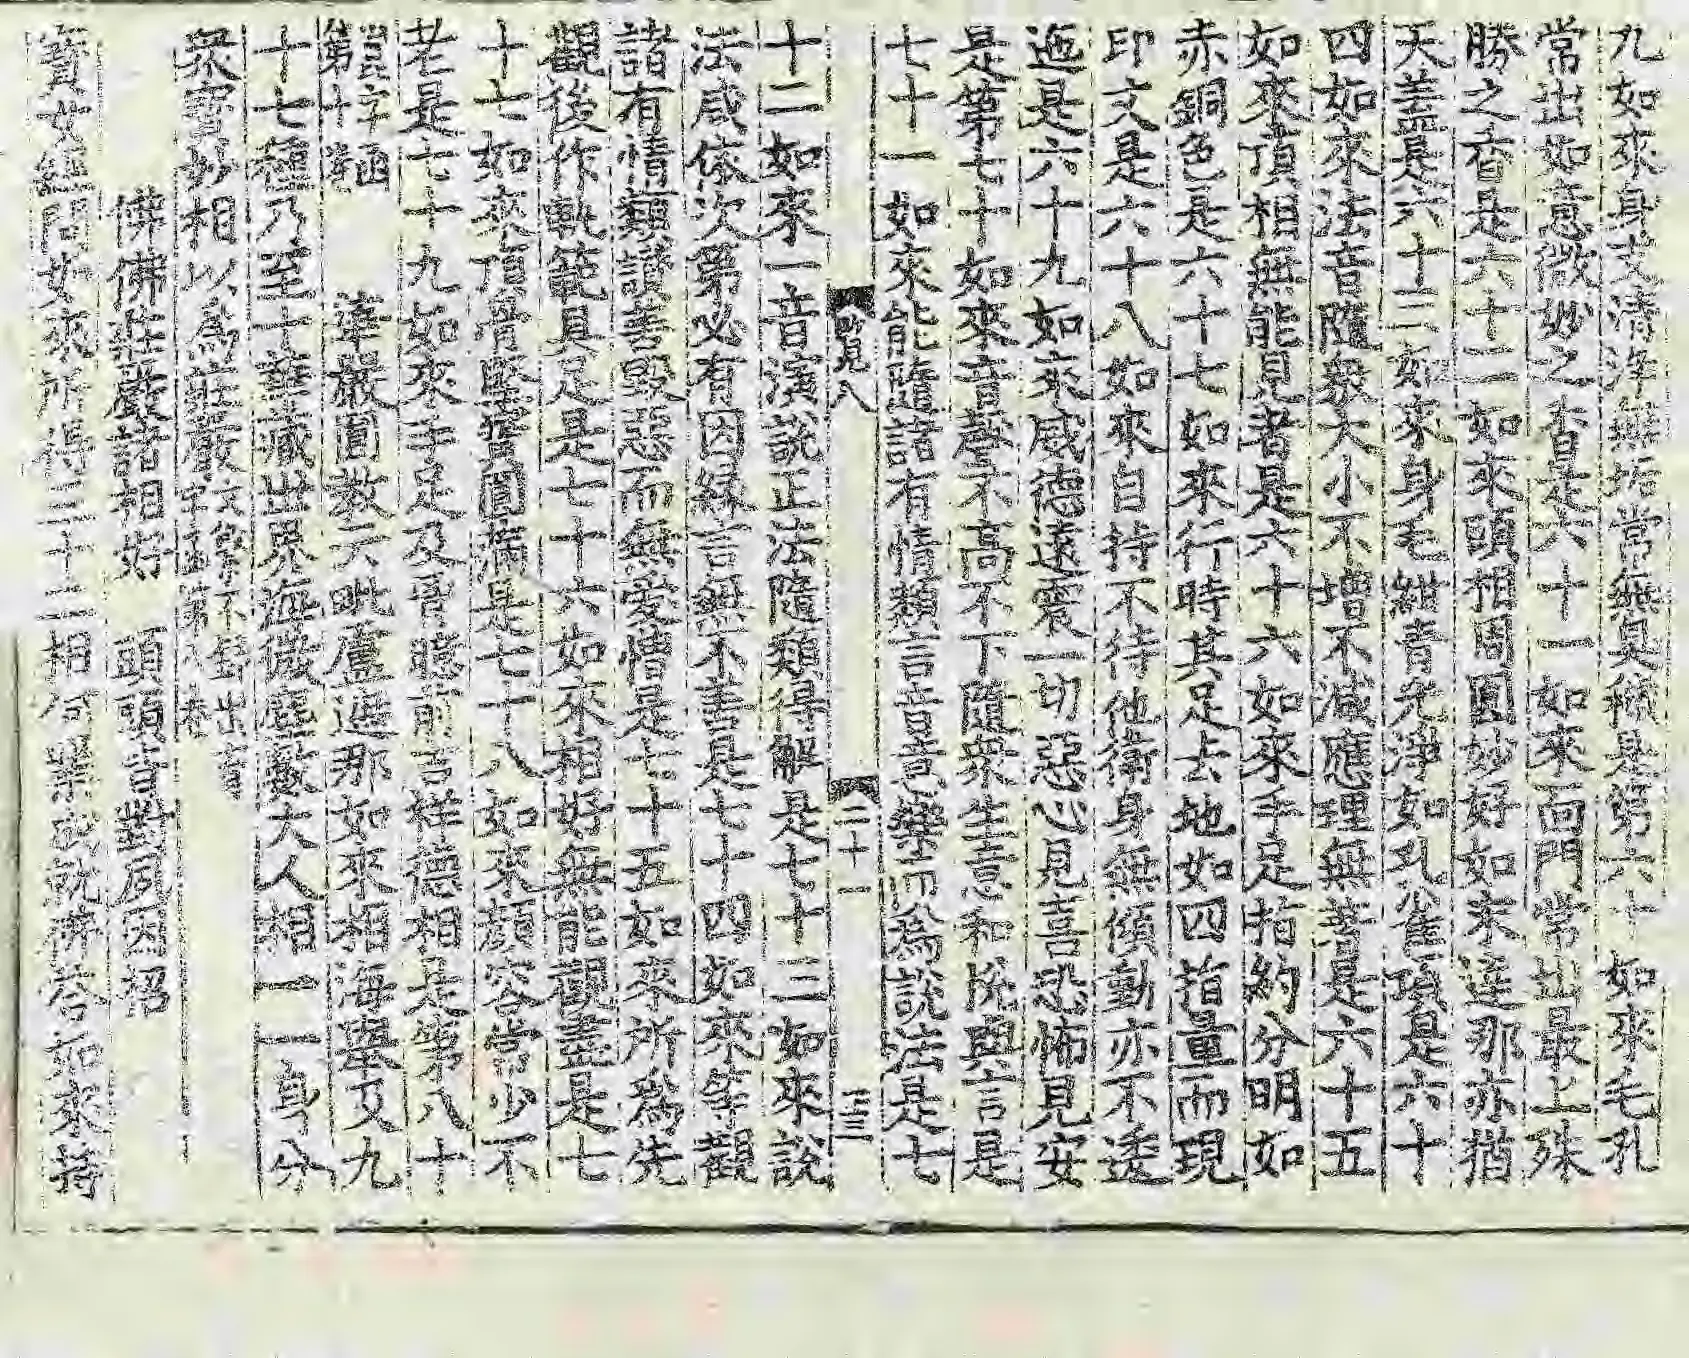 九如來身支清淨無垢常無臭穢是第六十如來毛孔
常出如意微妙之香是六十一如來面門常出最上殊
勝之香是六十二如來頭相周圓妙好如末達那亦猶
天蓋是六十三如來身毛紺青光淨如孔雀項是六十
四如來法音隨衆大小不增不減應理無差是六十五
如來頂相無能見者是六十六如來手足指約分明如
赤銅色是六十七如來行時其足去地如四指量而現
印文是六十八如來自持不待他衛身無傾動亦不逶
迤是六十九如來威德遠震一切惡心見喜恐怖見安
是第七十如來音聲不高不下隨衆生意和悅與言是
七十一如來能隨諸有情類言音意樂而爲說法是七
覽八 二十一 三三
十二如來一音演說正法隨類得解是七十三如來說
法咸依次第必有因緣言無不善是七十四如來等觀
諸有情類讚善毀惡而無愛憎是七十五如來所爲先
觀後作軌範具足是七十六如來相好無能觀盡是七
十七如來頂骨堅實圓滿是七十八如來顏容常少不
老是七十九如來手足及胷臆前吉祥德相是第八十
字函第十 華嚴圓教云毗盧遮那如來相海擧又九
十七種乃至十華藏世界海微塵數大人相一一身分
衆寶妙相以爲莊嚴文繁不錄出
佛佛莊嚴諸相好 頭頭皆對同因招
寶女經問如來所得三十二相何業成就佛答如來持